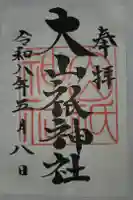 奉拝
大山祇神社
令和八年五月八日